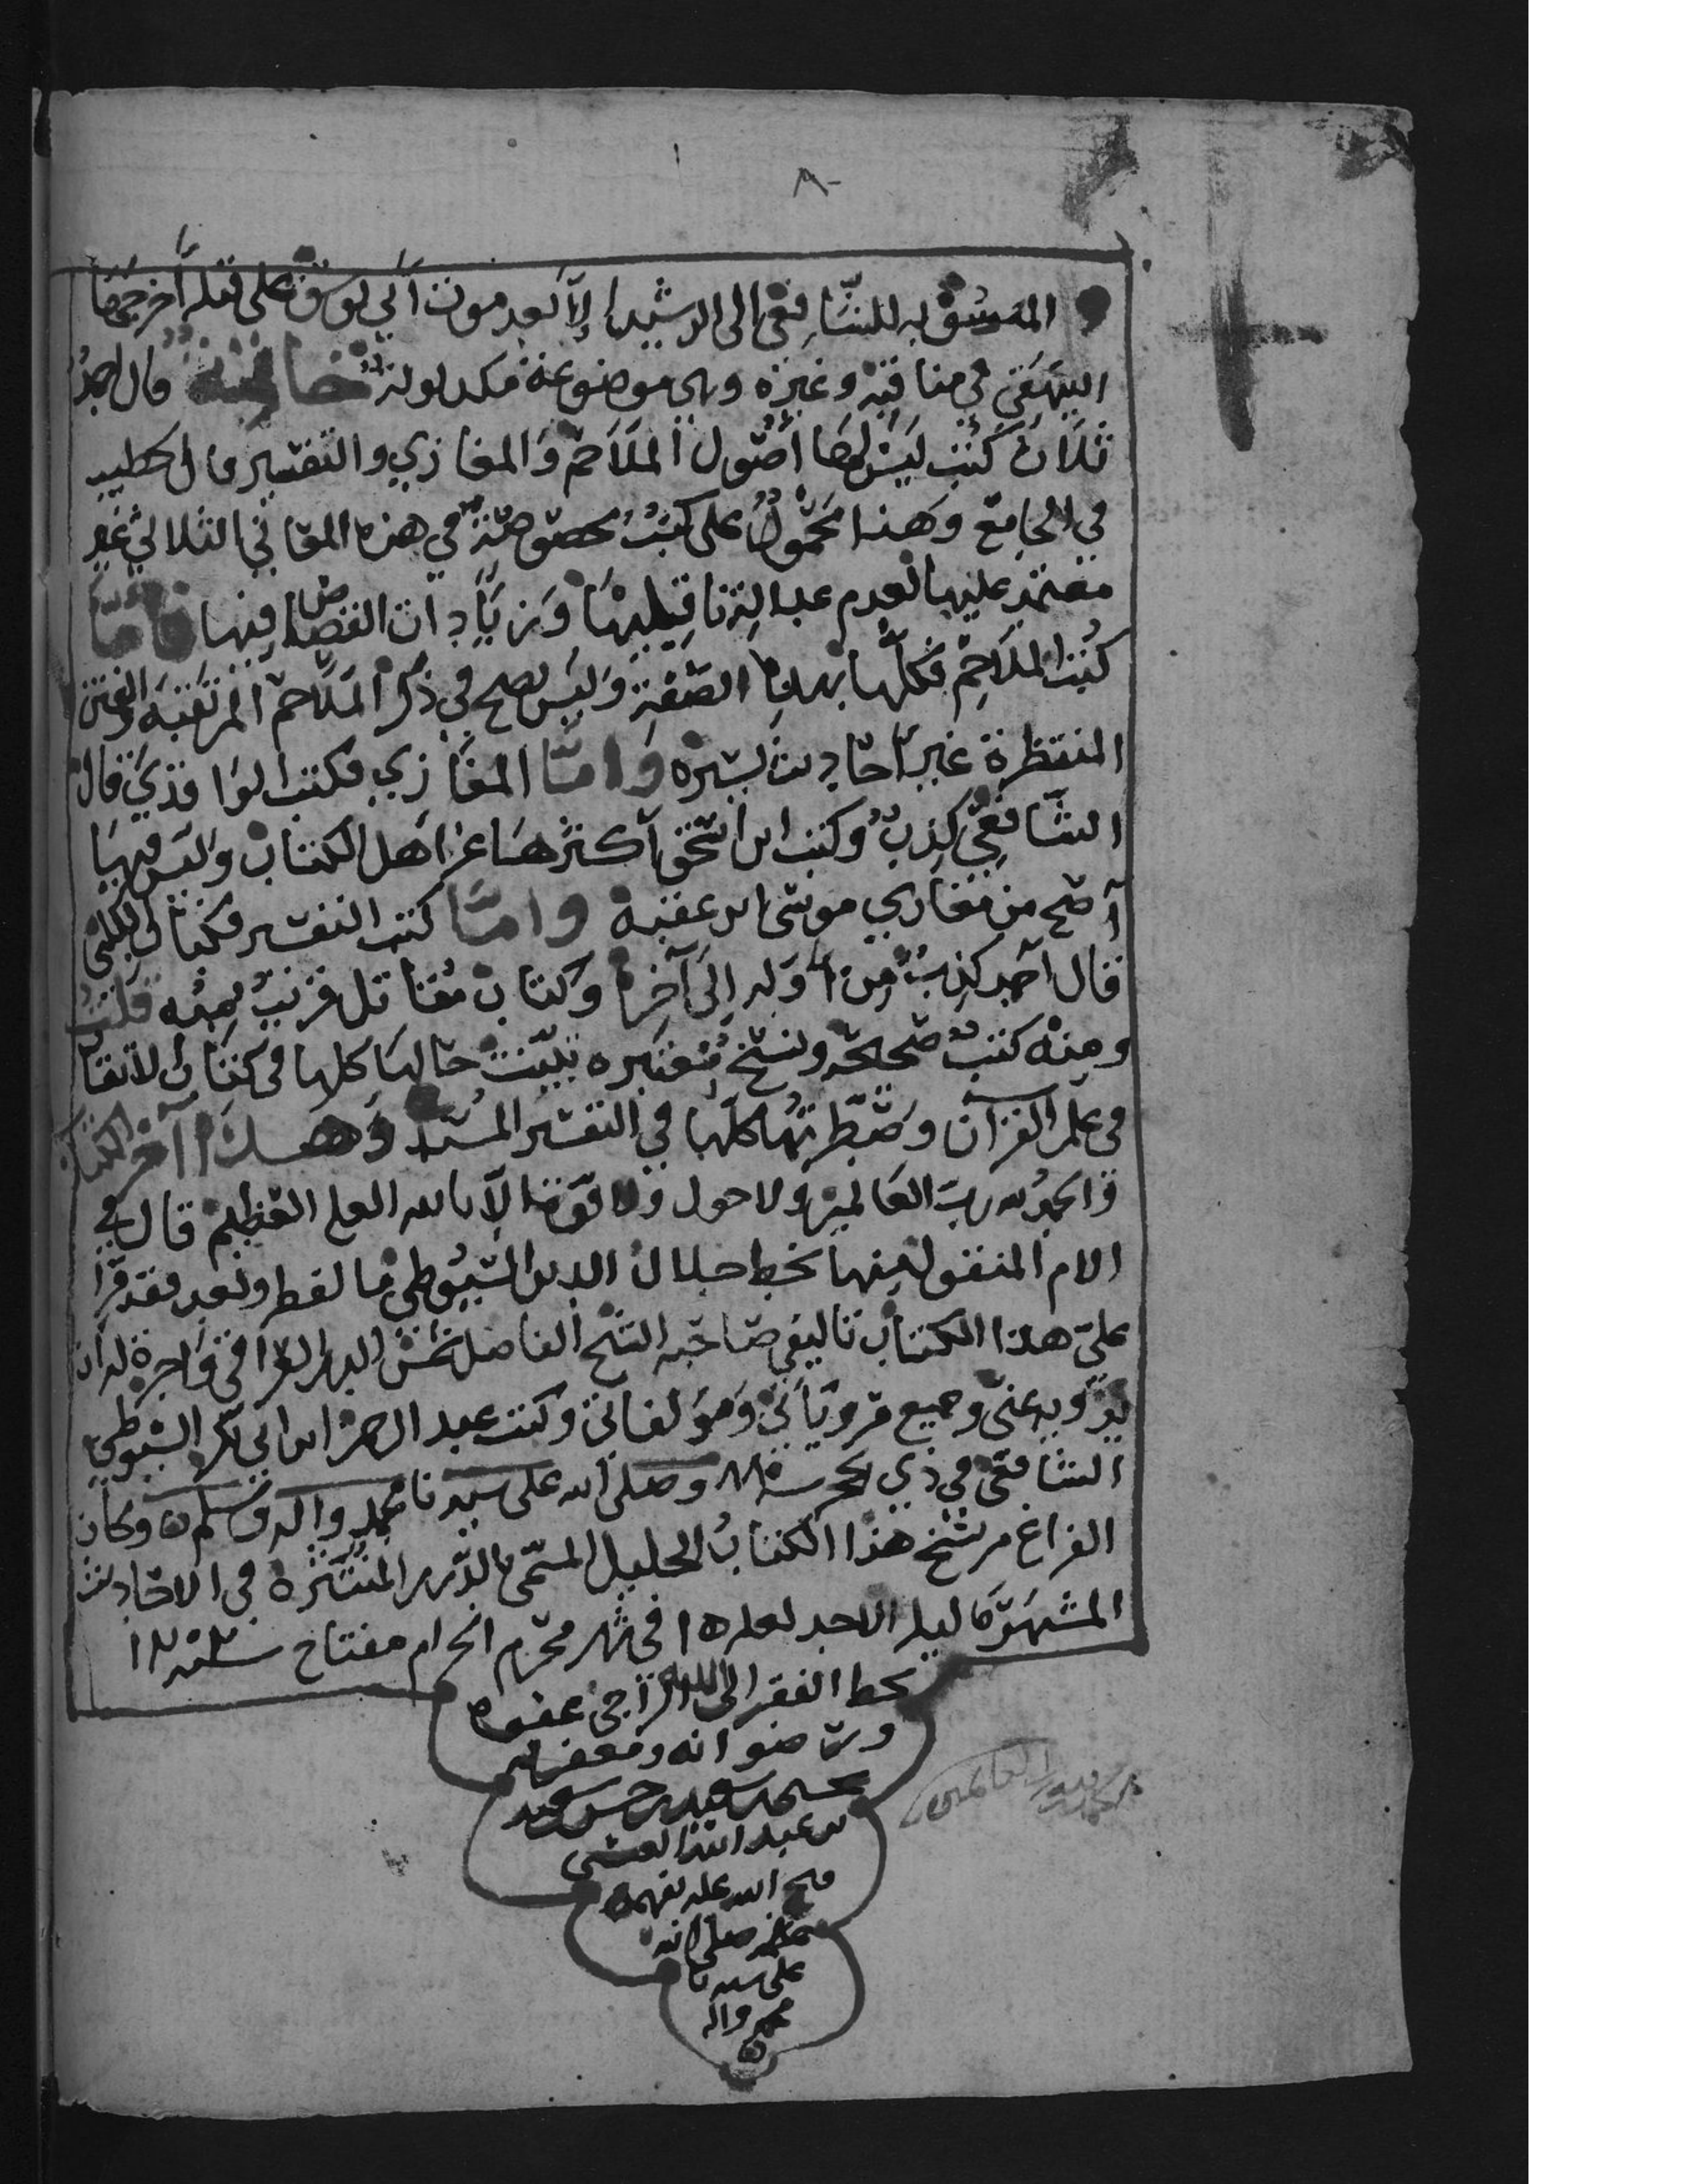 ٨
المنسوبة للشافعي الى الرشيد الا بعد موت ابي يوسف على قتله اخرجها
البيهقي في مناقبه وغيره وهي موضوعة مكذوبة خاتمة قال احمد
ثلاث كتب ليس لها اصول الملاحم والمغازي والتفسير قال الخطيب
في الجامع وهذا محمول على كتب مخصوصة في هذه المعاني الثلاثة غير
معتمد عليها لعدم عدالة ناقليها وزيادات القصاص فيها فاما
كتب الملاحم فكلها بهذه الصفة وليس يصح في ذكر الملاحم المرتقبة والفتن
المنتظرة غير احاديث يسيره واما المغازي فكتب الواقدي قال
الشافعي كذب وكتب ابن اسحق اكثرها عن اهل الكتاب وليس فيها
اصح من مغازي موسى ابن عقبه واما كتب التفسير فكتاب الكلبي
قال احمد كذب من اوله الى آخره وكتاب مقاتل قريب منه قلت
ومنه كتب صحيحة ونسخ معتبره بينت حالها كلها في كتاب الاتقان
في علم القرآن وضبطتها كلها في التفسير المسند وهذا آخر الكتاب
والحمد لله رب العالمين ولا حول ولا قوة الا بالله العلي العظيم قال في
الام المنقول منها بخط جلال الدين السيوطي ما لفظه وبعد فقد قرا
علي هذا الكتاب تاليفي صاحبه الشيخ الفاضل شمس الدين القرافي واجزة له ان
يرويه عني وجميع مروياتي ومولفاتي وكتب عبد الرحمن ابن ابي بكر السيوطي
الشافعي في ذي الحجه سنة وصلى الله على سيدنا محمد واله وسلم وكان
الفراغ من نسخ هذا الكتاب الجليل المسمى بالدرر المنتثرة في الاحاديث
المشتهرة ليلة الاحد لعله ١٥ في شهر محرم الحرام مفتاح سنة
بخط الفقير الى الله الراجي عفوه
ورضوانه ومغفرته
محمد سعيد بن حسن سعيد
بن عبد الله العنسي
فتح الله عليه بفهمه
وصلى الله
على سيدنا
محمد واله
الحمد لله رب العالمين